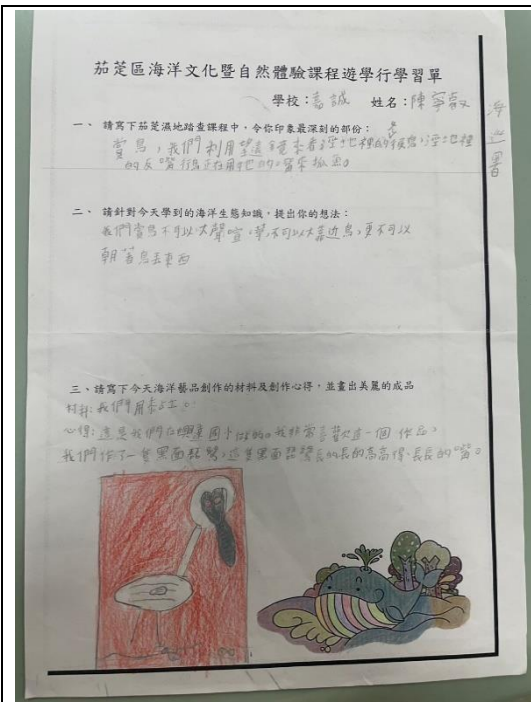 茄萣區海洋文化暨自然體驗課程遊學行學習單
學校：嘉誠 姓名：陳寧
一、 請寫下茄萣濕地踏查課程中，令你印象最深刻的部份：
賞鳥，我們利用望遠鏡來看溼地裡的候鳥，溼地裡
的反嘴行鳥正在用牠的嘴來抓魚。
二、 請針對今天學到的海洋生態知識，提出你的想法：
我們賞鳥不可以大聲喧嘩，不可以太靠近鳥，更不可以
朝著鳥丟東西
三、請寫下今天海洋藝品創作的材料及創作心得，並畫出美麗的成品
材料：我們用黏土。
心得：這是我們在興達國小做的。我非常喜歡這一個作品，
我們作了一隻黑面琵鷺，這隻黑面琵鷺長的高高得、長長的嘴。